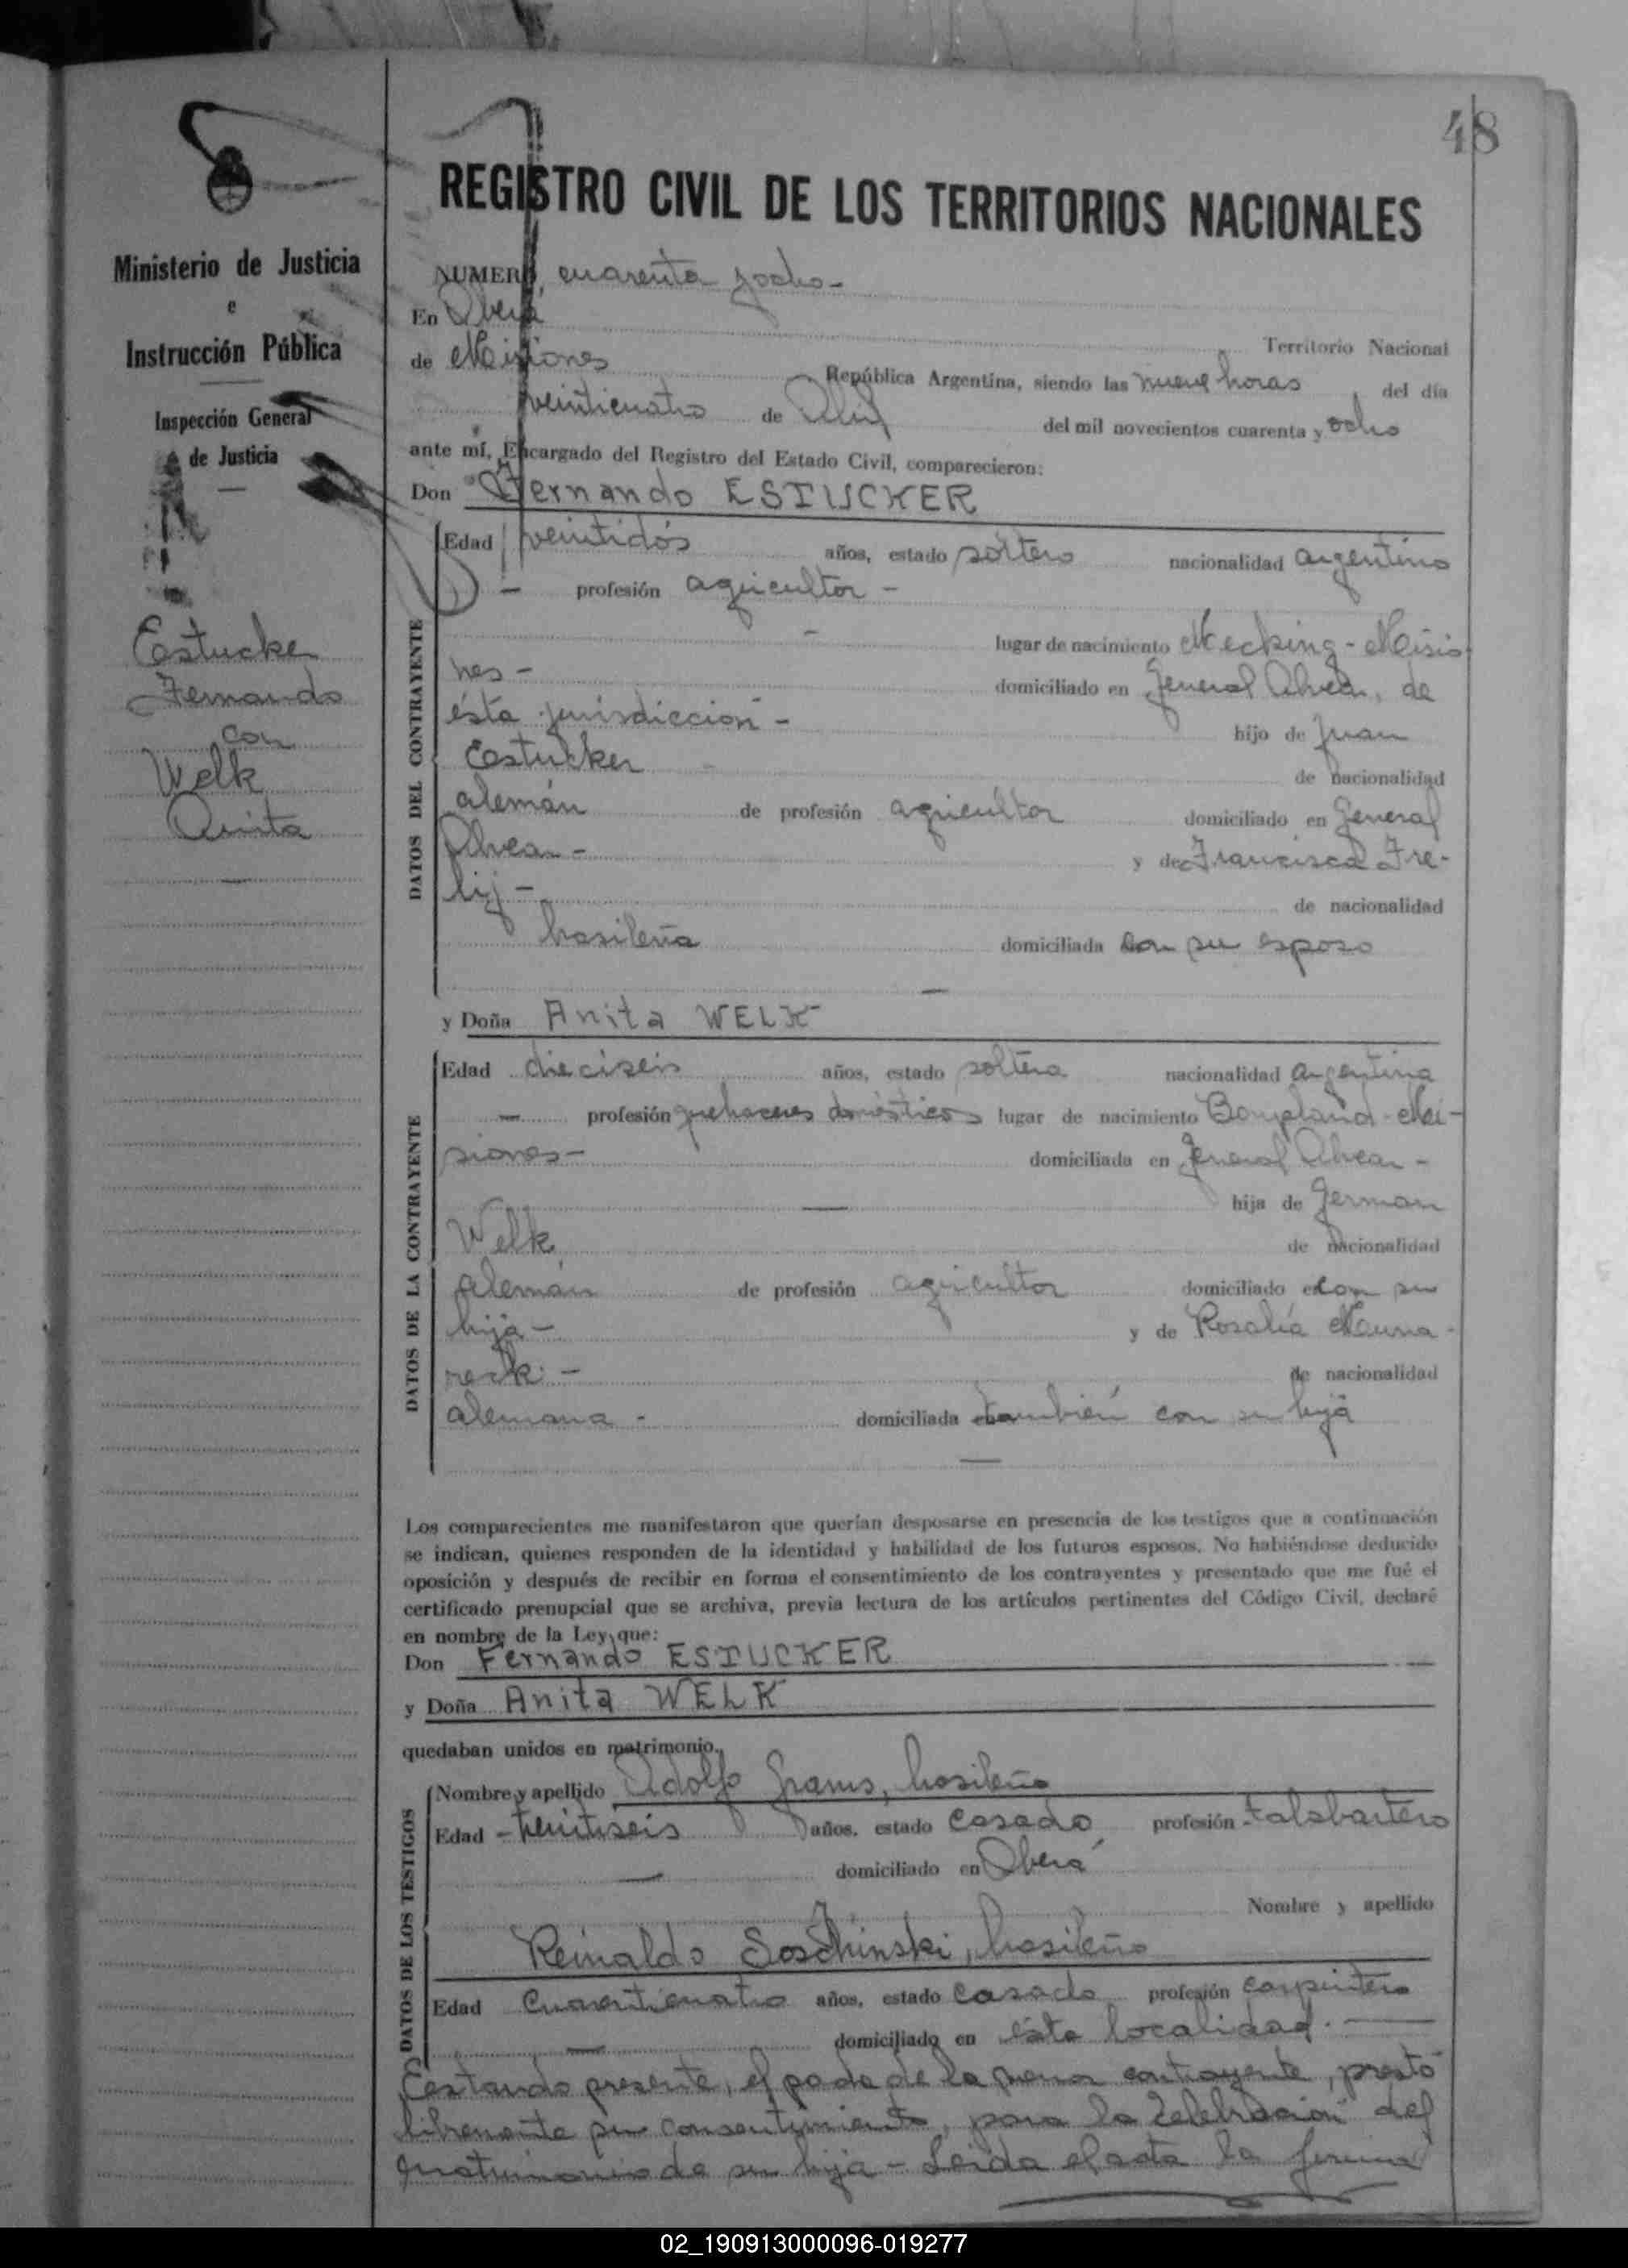 48
Ministerio de Justicia
e
Instrucción Pública
Inspección General
de Justicia
Estucker
Fernando
con
Welk
Anita
REGISTRO CIVIL DE LOS TERRITORIOS NACIONALES
NUMERO, cuarenta y ocho-
En Oberá
Territorio Nacional
de Misiones República Argentina, siendo las nueve horas del día
veinticuatro de Abril del mil novecientos cuarenta y ocho
ante mí, Encargado del Registro del Estado Civil, comparecieron:
Don Fernando ESTUCKER
DATOS DEL CONTRAYENTE
Edad veintidós años, estado soltero nacionalidad argentino
- profesión agricultor -
- lugar de nacimiento Mecking - Misio
nes - domiciliado en General Alvear, de
ésta jurisdicción - hijo de Juan
Estucker de nacionalidad
alemán de profesión agricultor domiciliado en General
Alvear - y de Francisca Fre-
lij - de nacionalidad
brasileña domiciliada con su esposo
—
y Doña Anita WELK
DATOS DE LA CONTRAYENTE
Edad dieciseis años, estado soltera nacionalidad argentina
— profesión quehaceres domésticos lugar de nacimiento Bonpland - Mi-
siones - domiciliada en General Alvear -
— hija de German
Welk de nacionalidad
alemán de profesión agricultor domiciliado con su
hija - y de Rosalía
de nacionalidad
alemana - domiciliada también con su hija
—
Los comparecientes me manifestaron que querían desposarse en presencia de los testigos que a continuación
se indican, quienes responden de la identidad y habilidad de los futuros esposos. No habiéndose deducido
oposición y después de recibir en forma el consentimiento de los contrayentes y presentado que me fué el
certificado prenupcial que se archiva, previa lectura de los artículos pertinentes del Código Civil, declaré
en nombre de la Ley que:
Don Fernando ESTUCKER
y Doña Anita WELK
quedaban unidos en matrimonio.
DATOS DE LOS TESTIGOS
Nombre y apellido Adolfo Grams, brasileño
Edad - treintiseis años, estado casado profesión - talabartero
— domiciliado en Oberá
Nombre y apellido
Reinaldo Soschinski, brasileño
Edad cuarenticuatro años, estado casado profesión carpintero
— domiciliado en ésta localidad. —
Estando presente, el padre de la menor contrayente, prestó
libremente su consentimiento, para la celebración del
matrimonio de su hija - Leída el acta la firman
02_190913000096-019277